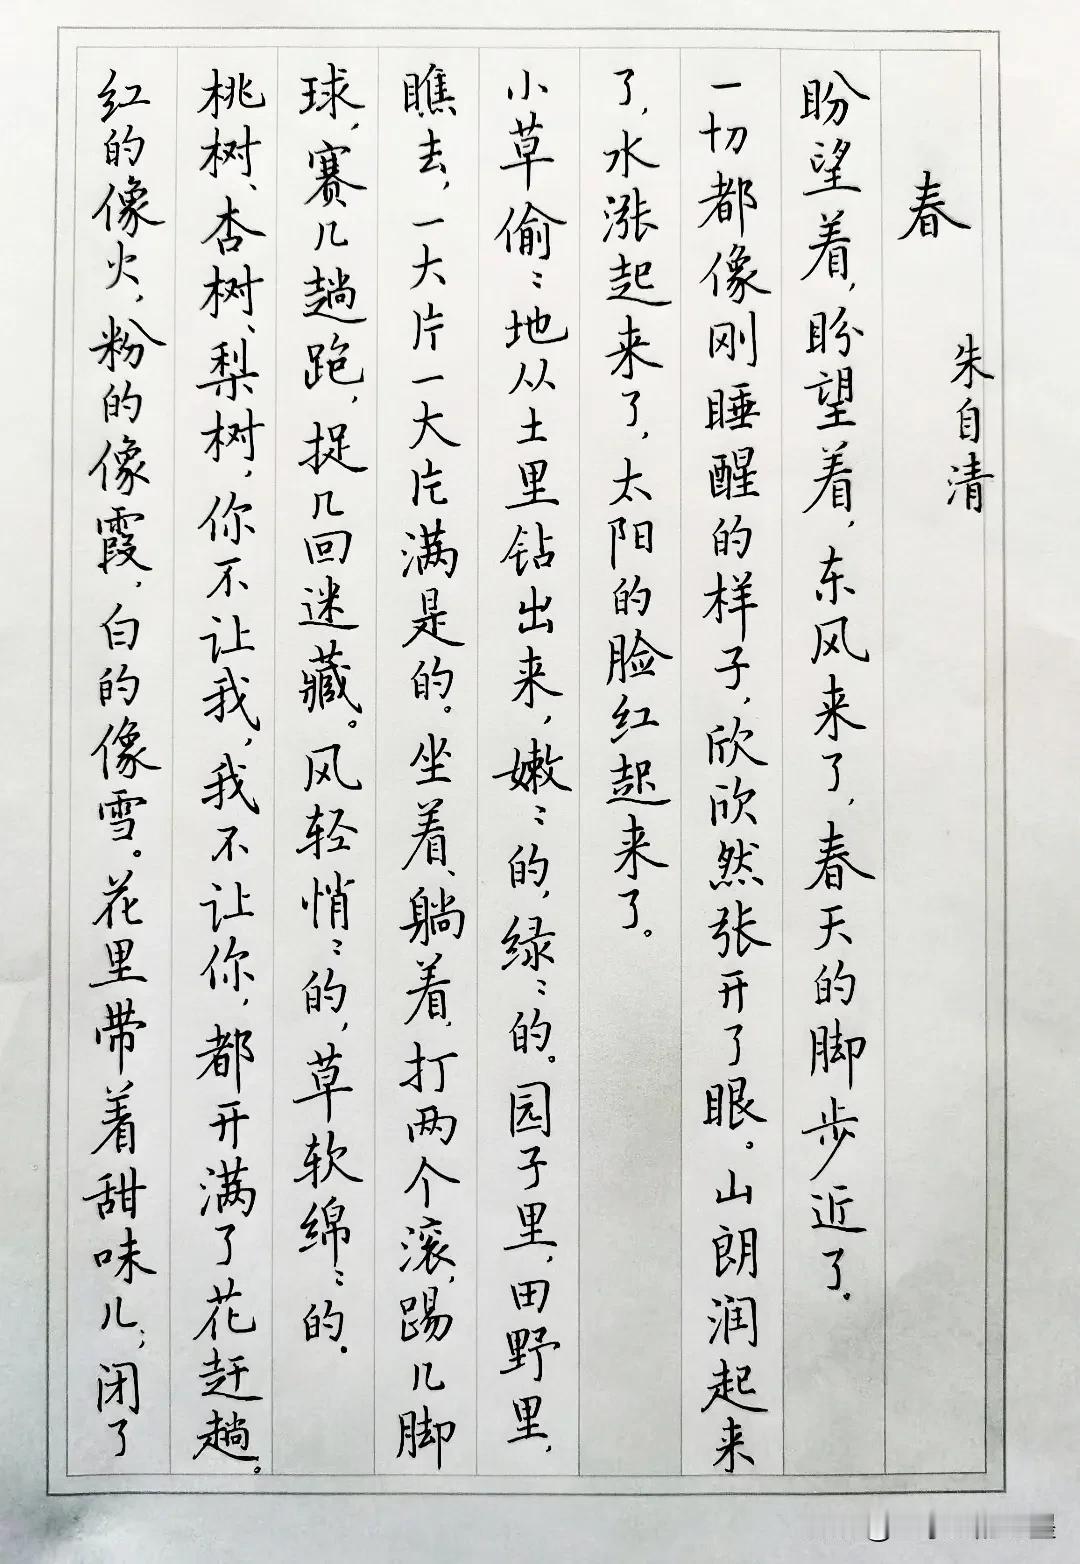 春
朱自清
盼望着，盼望着，东风来了，春天的脚步近了。
一切都像刚睡醒的样子，欣欣然张开了眼。山朗润起来
了，水涨起来了，太阳的脸红起来了。
小草偷〻地从土里钻出来，嫩〻的，绿〻的。园子里，田野里，
瞧去，一大片一大片满是的。坐着、躺着，打两个滚，踢几脚
球，赛几趟跑，捉几回迷藏。风轻悄〻的，草软绵〻的。
桃树、杏树、梨树，你不让我，我不让你，都开满了花赶趟。
红的像火，粉的像霞，白的像雪。花里带着甜味儿；闭了